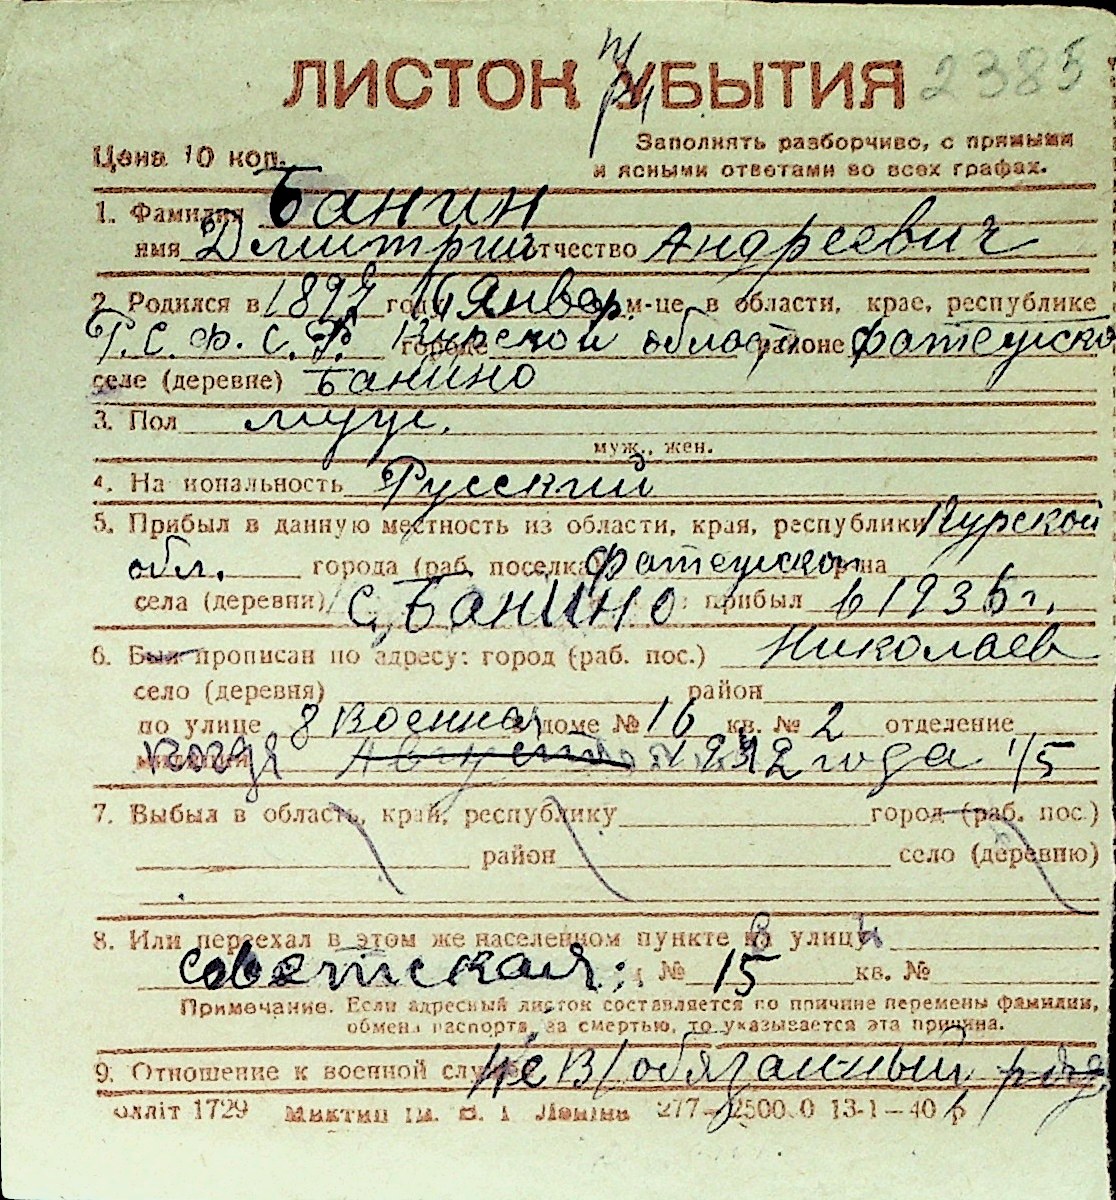 ЛИСТОК УБЫТИЯ 2385
Цена 10 коп.
Заполнять разборчиво, с прямыми
и ясными ответами во всех графах.
1. Фамилия Банин
имя Дмитрий отчество Андреевич
2. Родился в 1897 году 16 Январ. м-це, в области, крае, республике
Р.С.Ф.С.Р. городе Курской област районе Фатежско
селе (деревне) Банино
3. Пол муж.
муж., жен.
4. На иональность Русский
5. Прибыл в данную местность из области, края, республики Курской
обл. города (раб. поселка) Фатежског р-на
села (деревни) с. Банино прибыл в 1936 г.
6. Был прописан по адресу: город (раб. пос.) Николаев
село (деревня) район
по улице 8 Военная доме № 16 кв. № 2 отделение
когда Август 1942 года 1/5
7. Выбыл в область, край, республику город (раб. пос.)
район село (деревню)
8. Или переехал в этом же населенном пункте на улицу
Советская; № 15 кв. №
Примечание. Если адресный листок составляется по причине перемены фамилии,
обмена паспорта, за смертью, то указывается эта причина.
9. Отношение к военной слу Не В/обязанный
олліт 1729 277—2500.0 13-1—40 р